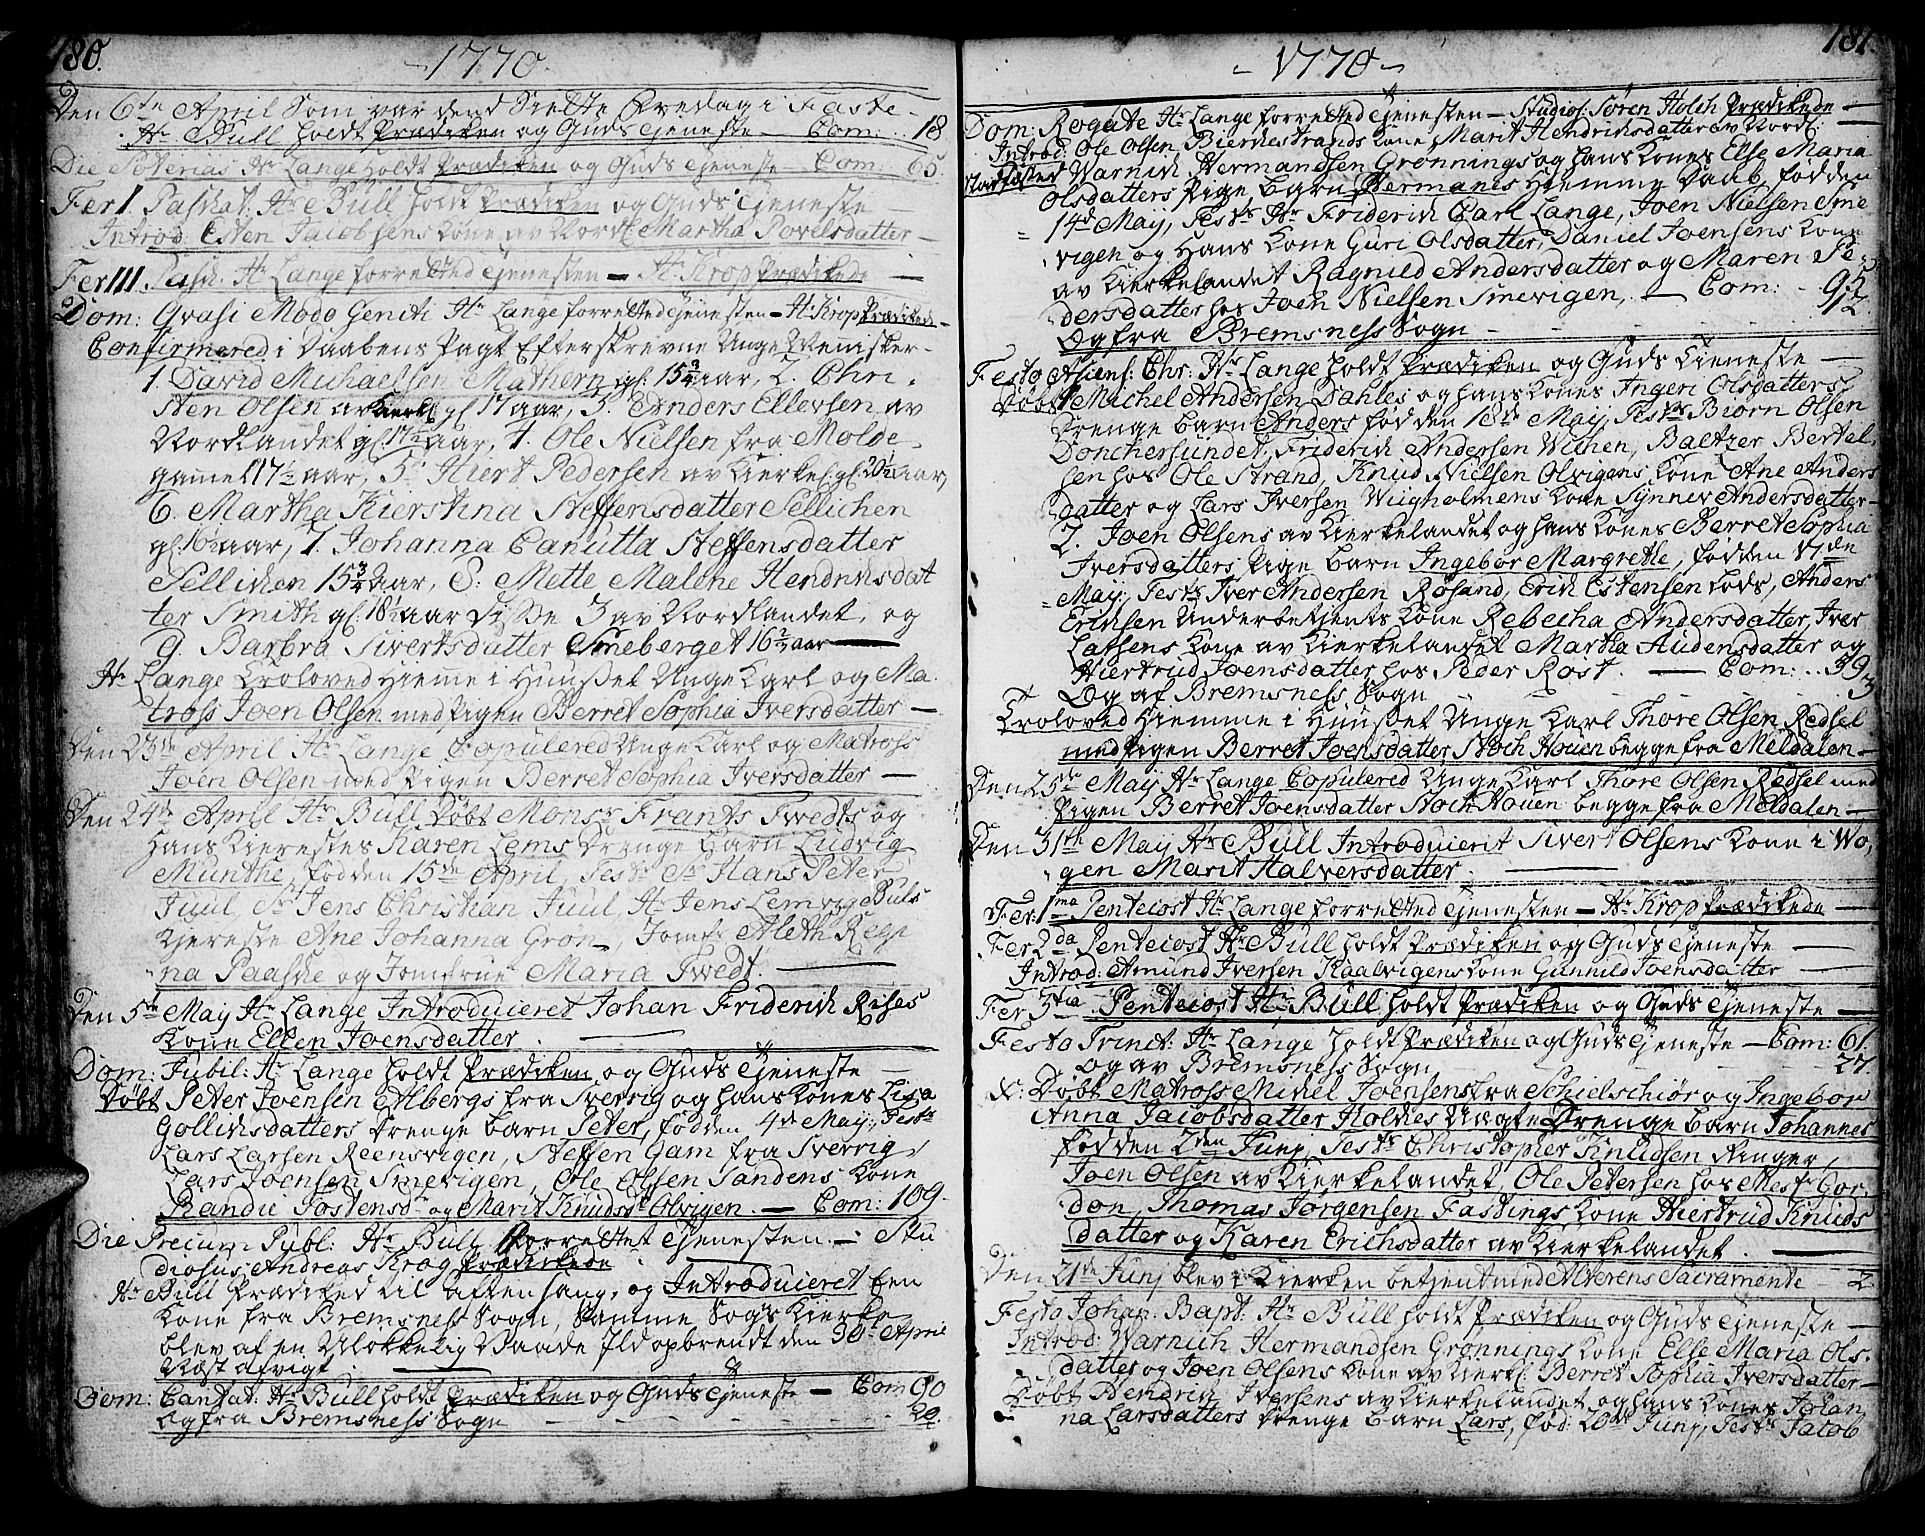 180.
-1770.
Den 6te April Som var dend Siette Fredag i Faste-
Hr Bull holdt Prædiken og Guds Tjeneste - Com: 18
Die Hr Lange holdt Prædiken og Guds Tjeneste - Com. 65.
Fer I. Paschat: Hr Bull holdt Prædiken og Guds Tjeneste
Introd: Esten Jacobsens Kone av Nordl: Martha Povelsdatter -
Fer III. Pasch. Hr Lange forretted Tjenesten - Hr Krop Prædikede -
Dom: Qvasi Modo Geniti Hr Lange forretted Tjenesten - Hr Krop Prædiked-
Confirmered i Daabens Pagt Efterskrevne Unge Menisker-
1. David Michaelsen Mathern gl: 15¾ aar, 2. Chri-
sten Olsen av Kierkl: gl 17 aar, 3. Anders Ellevsen av
Nordlandet gl: 17½ aar, 4. Ole Nielsen fra Molde
gamel 17½ aar, 5. Hiert Pedersen av Kierkel: gl: 20½ aar,
6. Martha Kierstina Steffensdatter Sellichen
gl: 16½ aar, 7. Johanna Canutta Steffensdatter
Sellichen 15¾ aar, 8: Mette Malene Hendrichsdat
ter Smith gl: 18½ aar Disse 3 av Nordlandet, og
9. Barbra Sivertsdatter Smeberget 16½ aar
Hr Lange Troloved Hiemme i Huuset Unge Karl og Ma-
tross Joen Olsen med Pigen Berret Sophia Iversdatter -
Den 23de April Hr Lange Copulered Unge Karl og Matross
Joen Olsen med Pigen Berret Sophia Iversdatter -
Den 24de April Hr Bull Døbt Monsr Frants Twedts og
Hans Kierestes Karen Lems Drenge Barn Ludvig
Munthe, fød den 15de April, Testr Sr Hans Peter
Juul, Sr Jens Christian Juul, Hr Jens Lemvig Buls
Kiereste Ane Johanna Grøn, Jomfr Aleth Regi
na Paaske og Jomfrue Maria Twedt.
Den 5te May Hr Lange Introduieret Johan Friderich Rises
Kone Ellen Joensdatter.
Dom: Jubil: Hr Lange holdt Prædiken og Guds Tjeneste -
Døbt Peter Joensen Albergs fra Sverrig og hans Kones Lisa
Gollichsdatters Drenge Barn Peter, fød den 4de May, Testr
Lars Larsen Reensvigen, Steffen Gam fra Sverrig
Lars Joensen Smevigen, Ole Olsen Sandens Kone
Randi Tostensdr og Marit Knudsdr Olvigen. - Com: 109.
Die Precum Publ: Hr Bull Forrettet Tjenesten - Stu
diosus Andreas Krog Prædikede
Hr Bull Prædiked til aftensang, og Introduieret Een
Kone fra Bremsness Sogn, Samme Sogns Kierke
blev af en Ulokkelig Vaade Ild opbrendt den 30te April
Næst afvigt.
Dom: Cantat: Hr Bull holdt Prædiken og Guds Tjeneste - Com 90
Og fra Bremsness Sogn - - - 20.
181.
-1770-
Dom: Rogate Hr Lange forretted Tjenesten - Studios: Søren Holch Prædikede -
Introd: Ole Olsen Bierkestrands Kone Marit Hendrichsdatter av Nordl:
Stadfæsted Warnich Hermandsen Grønnings og hans Kones Else Maria
Olsdatters Pige Barn Hermanes Hiemme Daab, fød den
14de May, Testr Hr Friderich Carl Lange, Joen Nielsen Sme
vigen og Hans Kone Guri Olsdatter, Daniel Joensens Kone
av Kierkelandet Ragnild Andersdatter og Maren Pe-
dersdatter hos Joen Nielsen Smevigen, - Com: - 95
Og fra Bremsness Sogn - - - 12.
Festo Asiens: Chr: Hr Lange holdt Prædiken og Guds Tieneste -
Døbt 1 Michel Andersen Dahles og hans Kones Ingeri Olsdatters
Drenge Barn Anders fød den 18de May, Testr Biørn Olsen
Donchersundet, Friderich Andersen Winen, Baltzer Bertel
sen hos Ole Strand, Knud Nielsen Olvigens Kone Ane Anders
datter og Lars Iversen Weigholmens Kone Synnev Andersdatter -
2. Joen Olsens av Kierkelandet og hans Kones Berret Sophia
Iversdatters Pige Barn Ingebor Margrethe, fød den 17de
May, Testr Iver Andersen Røsand, Erich Estensen Lods, Anders
Erichsen Underbetients Kone Rebecha Andersdatter, Iver
Lassens Kone av Kierkelandet Martha Audensdatter og
Hiertrud Joensdatter hos Peder Rost. - Com: . . 59
Og af Bremsness Sogn 3
Troloved Hiemme i Huuset Unge Karl Thore Olsen Redsel
med Pigen Berret Joensdatter Stoch Houen begge fra Meldalen -
Den 25de May Hr Lange Copulered Unge Karl Thore Olsen Redsel med
Pigen Berret Joensdatter Stoch Houen begge fra Meldalen -
Den 31th May Hr Bull Introduierit Sivert Olsens Kone i Wo,
gen Marit Halversdatter.
Fer: 1ma Penteiost Hr Lange forretted Tjenesten - Hr Krop Prædikede -
Fer 2da Penteiost Hr Bull holdt Prædiken og Guds Tjeneste -
Introd: Amund Iversen Kaalvigens Kone Gunnild Joensdatter -
Fer 3tia Penteiost Hr Bull holdt Prædiken og Guds Tjeneste -
Festo Trinit: Hr Lange holdt Prædiken og Guds Tjeneste - Com: 61.
og av Bremsness Sogn - 27.
N: Døbt Matross Michel Joensens fra Schielschiør og Ingebor
Anna Jacobsdatter Holches Uægte Drenge Barn Johannes
fød den 2den Junj, Testr Christopher Knudsen Ringer,
Joen Olsen av Kierkelandet, Ole Petersen hos Mestr Gor,
don, Thomas Jørgensen Fastings Kone Hiertrud Knuds
datter og Karen Erichsdatter av Kierkelandet.
Den 21de Junj blev i Kierken betjent med Alterens Sacramente - 2.
Festo Johan: Bapt: Hr Bull holdt Prædiken og Guds Tjeneste -
Introd: Warnich Hermandsen Grønnings Kone Else Maria Ols-
datter og Joen Olsens Kone av Kierkl: Berret Sophia Iversdatter -
Døbt Hendrich Iversens av Kierkelandet og hans Kones Johan
na Larsdatters Drenge Barn Lars, fød: 20de Junj, Testr Jacob